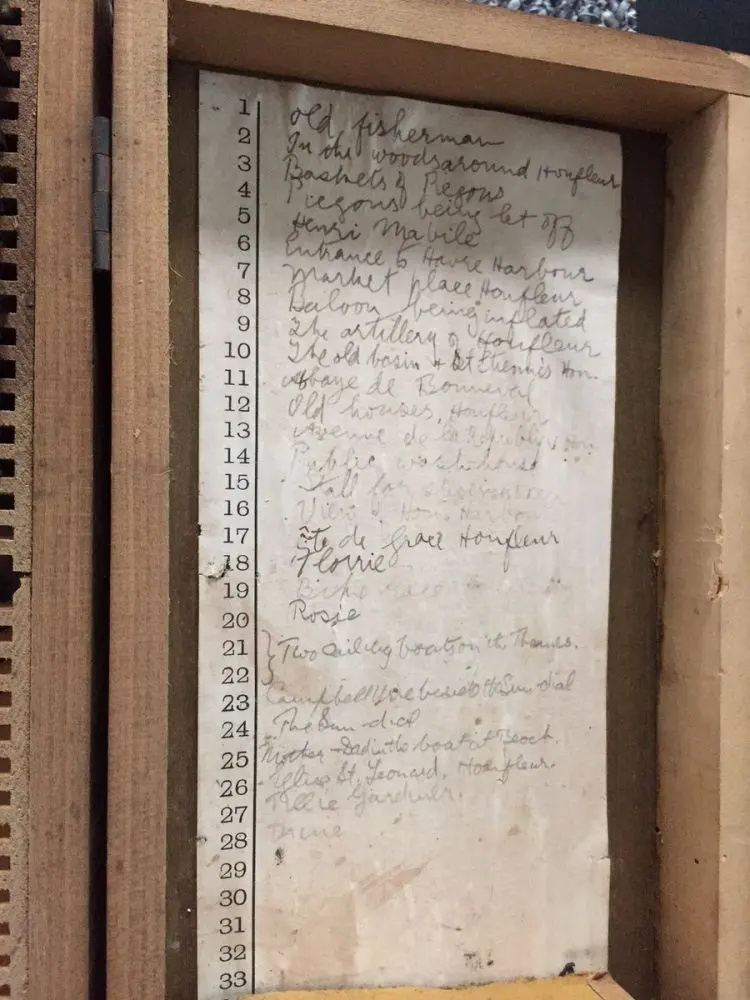 1 Old fisherman
2 In the woods around Honfleur
3 Baskets of Piegons
4 Piegons being let off
5 Henri Mabile
6 Entrance to Havre Harbour
7 Market place Honfleur
8 Baloon being inflated
9 The artillery of Honfleur
10 The old basin + St Etienne's Hon.
11 Abbaye de Bonneval
12 Old houses, Honfleur,
13 Avenue de la Republique Hon
14 Public washhouse
15 Stall for
16 View of Hon. Harbour
17 Côte de Grace Honfleur
18 Florrie
19
20 Rosie
21 } Two sailing boats on the Thames.
22
23 Campbell beside the Sun-dial
24 The Sun-dial
25 Mother & Dad in the boat at
26 Eglise St. Leonard, Honfleur.
27 Tillie Gardner.
28
29
30
31
32
33